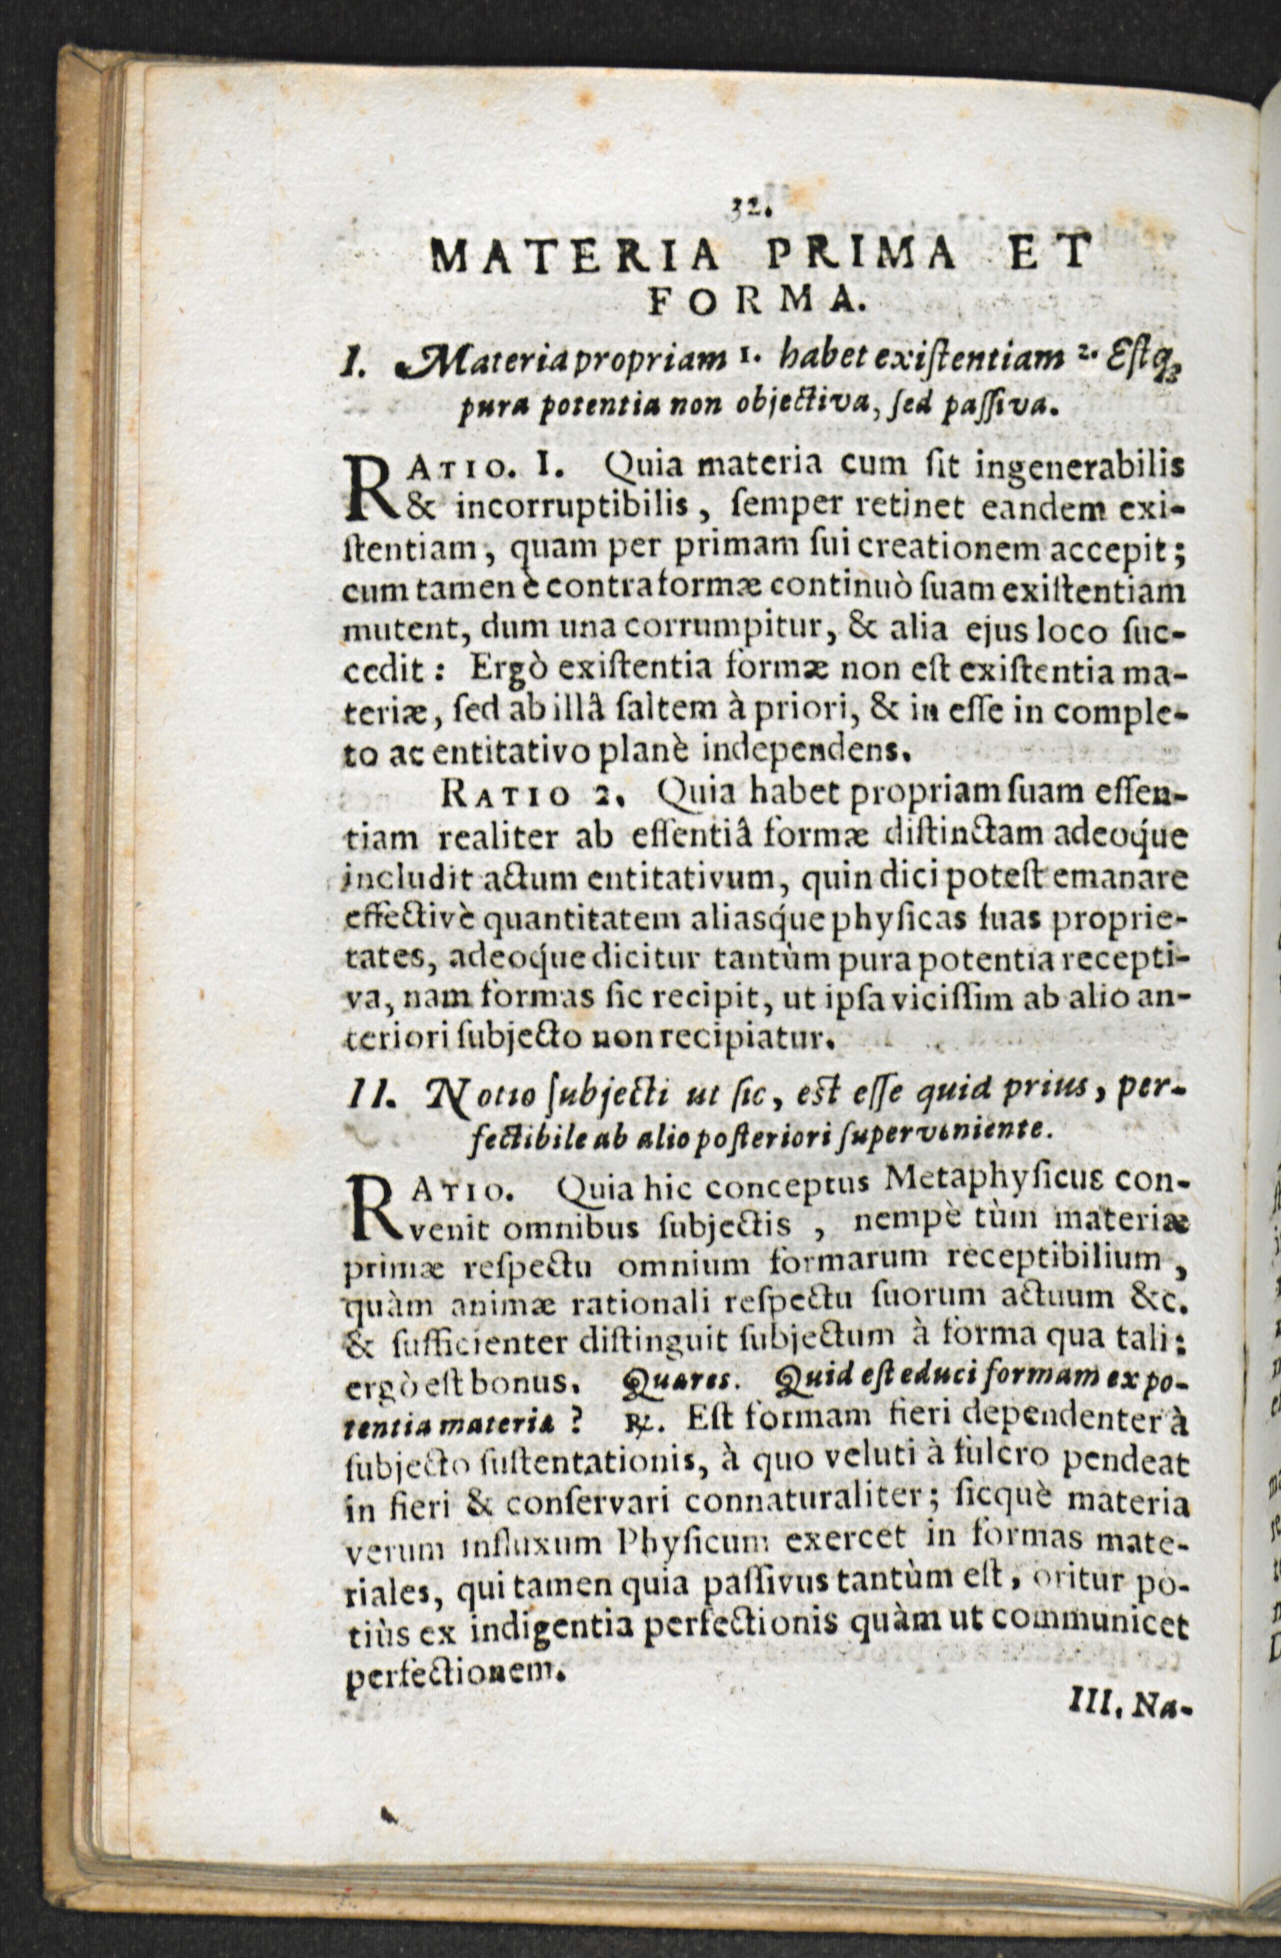 32.
MATERIA PRIMA ET
FORMA.
I. Materia propriam 1. habet exiſtentiam 2. Eſtq;
pura potentia non objectiva, ſed paſſiva.
RATIO. I. Quia materia cum ſit ingenerabilis
& incorruptibilis, ſemper retinet eandem exi-
ſtentiam, quam per primam ſui creationem accepit;
cum tamen è contra formæ continuò ſuam exiſtentiam
mutent, dum una corrumpitur, & alia ejus loco ſuc-
cedit: Ergò exiſtentia formæ non eſt exiſtentia ma-
teriæ, ſed ab illâ ſaltem à priori, & in eſſe in comple-
to ac entitativo planè independens.
RATIO 2. Quia habet propriam ſuam eſſen-
tiam realiter ab eſſentiâ formæ diſtinctam adeoq́ue
includit actum entitativum, quin dici poteſt emanare
effectivè quantitatem aliasq́ue phyſicas ſuas proprie-
tates, adeoq́ue dicitur tantùm pura potentia recepti-
va, nam formas ſic recipit, ut ipſa viciſſim ab alio an-
teriori ſubjecto non recipiatur.
II. Notio ſubjecti ut ſic, eſt eſſe quid prius, per-
fectibile ab alio poſteriori ſuperveniente.
RATIO. Quia hic conceptus Metaphyſicus con-
venit omnibus ſubjectis, nempè tùm materiæ
primæ reſpectu omnium formarum receptibilium,
quàm animæ rationali reſpectu ſuorum actuum &c.
& ſufficienter diſtinguit ſubjectum à forma qua tali:
ergò eſt bonus. Quæres. Quid eſt educi formam ex po-
tentia materiæ? ℟. Eſt formam fieri dependenter à
ſubjecto ſuſtentationis, à quo veluti à fulcro pendeat
in fieri & conſervari connaturaliter; ſicquè materia
verum influxum Phyſicum exercet in formas mate-
riales, qui tamen quia paſſivus tantùm eſt, oritur po-
tiùs ex indigentia perfectionis quàm ut communicet
perfectionem.
III. Na-